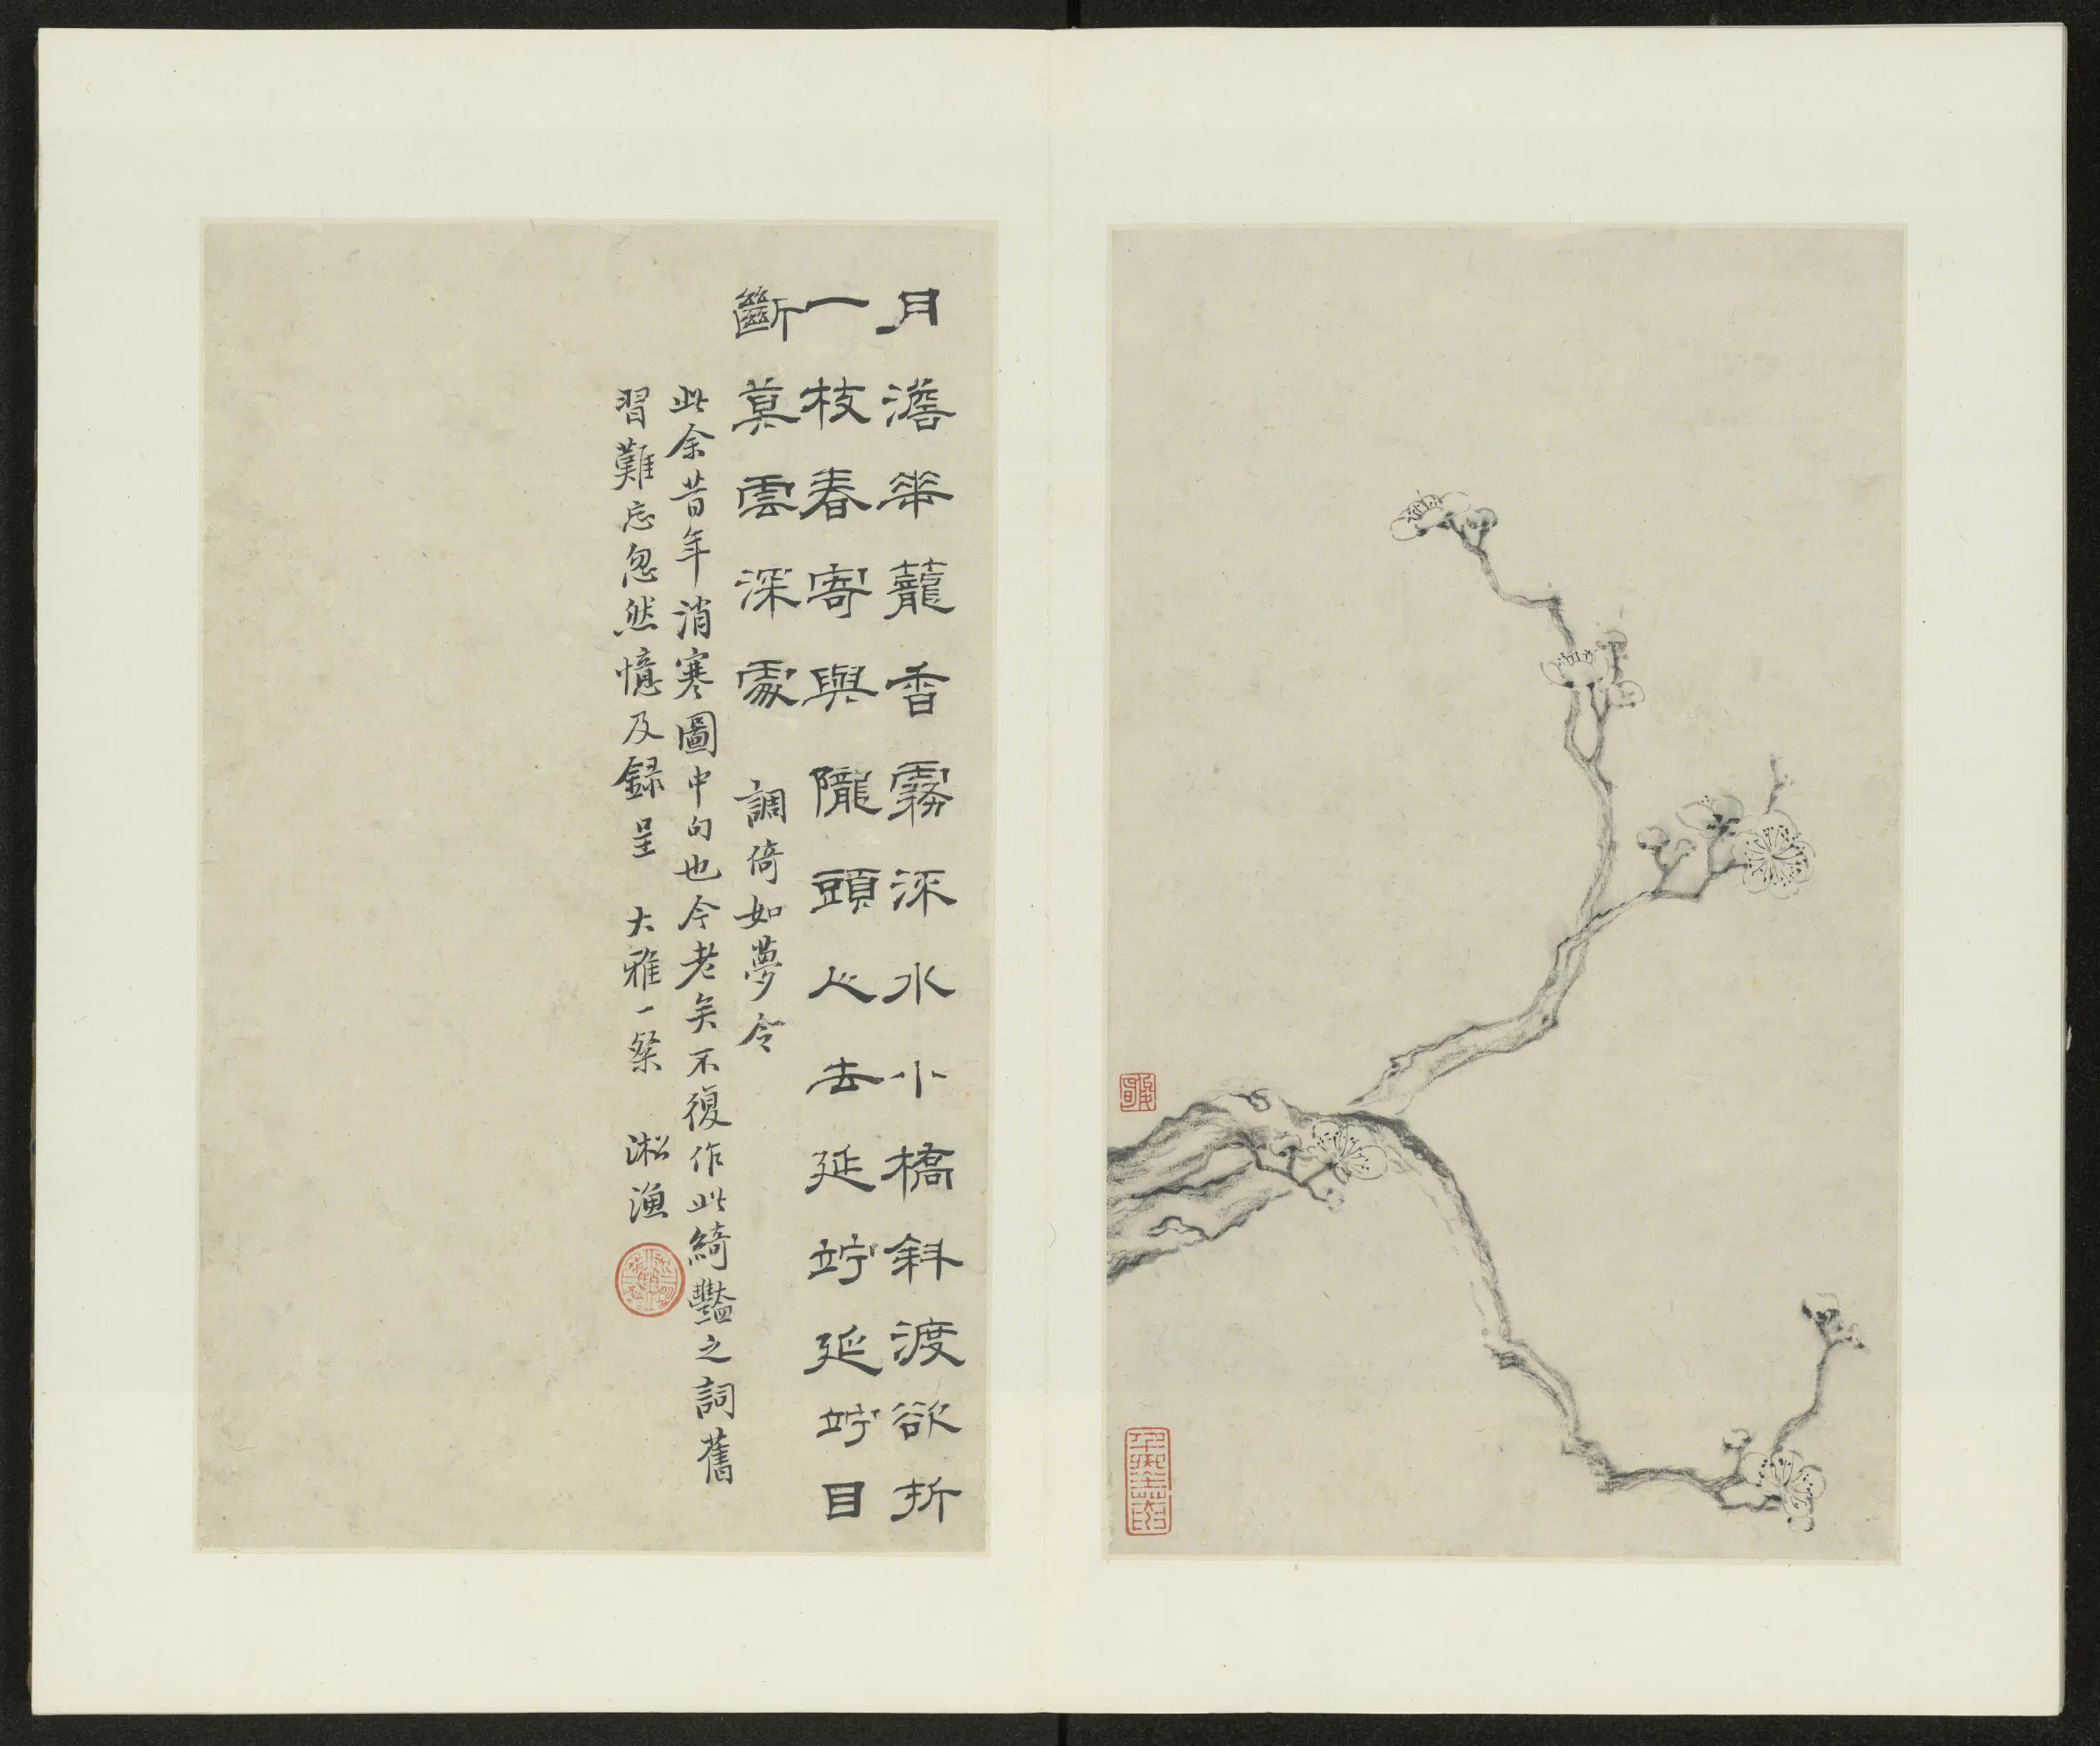 月澹華蘢香霧深水小橋斜渡欲折
一枝春寄與隴頭人去延竚延竚目
斷莫雲深處 調倚如夢令
此余昔年消寒圖中句也今老矣不復作此綺豔之詞舊
習難忘忽然憶及録呈 大雅一粲 淞漁